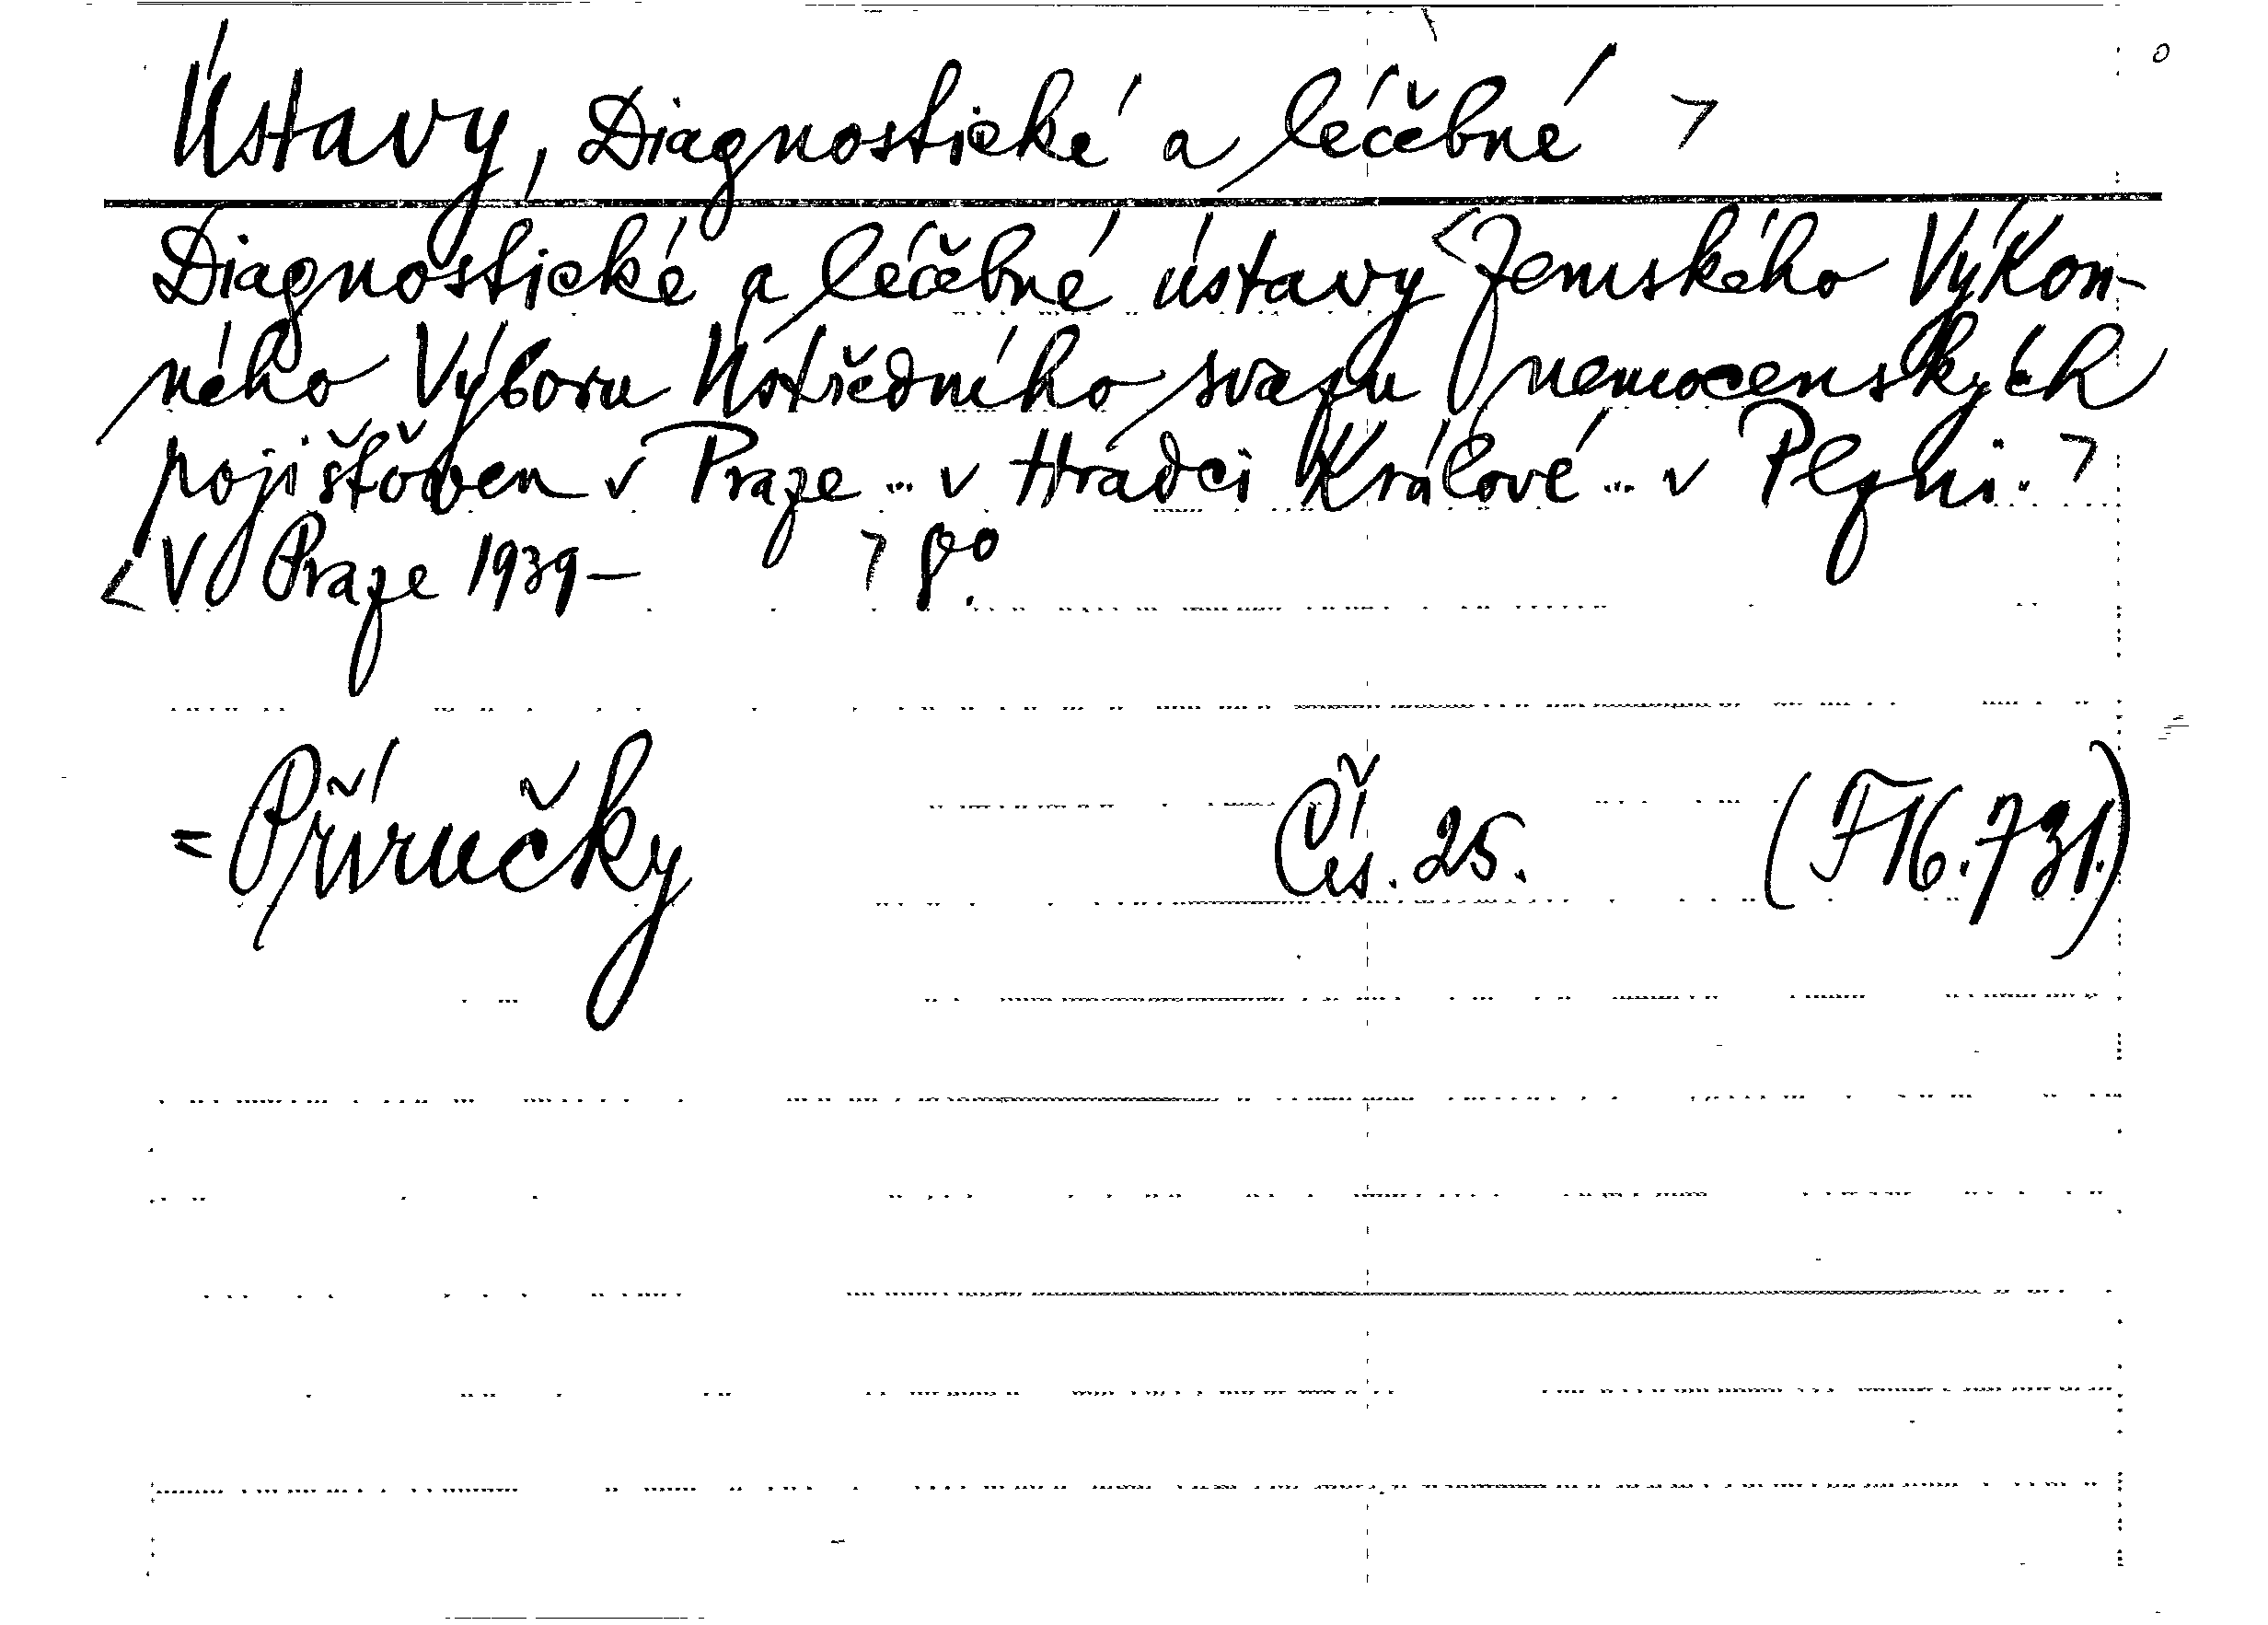 Ústavy, Diagnostické a léčebné >
Diagnostické a léčebné ústavy <Zemského Výkon-
ného Výboru Ústředního svazu nemocenských
pojišťoven v Praze ... v Hradci Králové ... v Plzni. >
<V Praze 1939 – > 8°.
= Příručky Čís. 25. (F 16.731.)